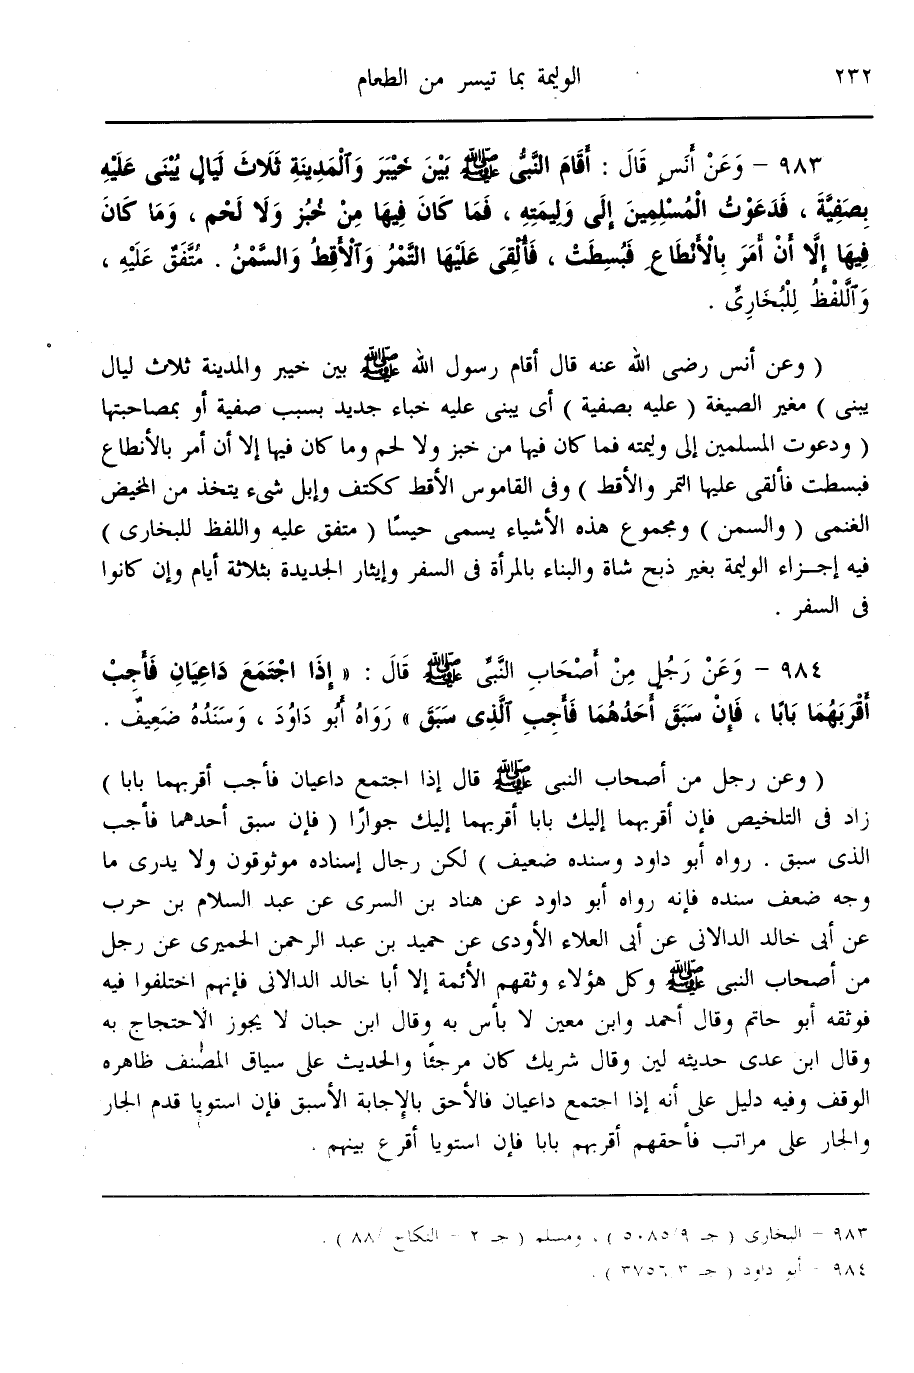 ٢٣٢ الوليمة بما تيسر من الطعام
٩٨٣ – وَعَنْ أَنَسٍ قَالَ : أَقَامَ النَّبِىُّ ﷺ بَيْنَ خَيْبَرَ وَٱلْمَدِينَةِ ثَلَاثَ لَيَالٍ يُبْنَى عَلَيْهِ
بِصَفِيَّةَ ، فَدَعَوْتُ الْمُسْلِمِينَ إِلَى وَلِيمَتِهِ ، فَمَا كَانَ فِيهَا مِنْ خُبْزٍ وَلَا لَحْمٍ ، وَمَا كَانَ
فِيهَا إِلَّا أَنْ أَمَرَ بِالْأَنْطَاعِ فَبُسِطَتْ ، فَأُلْقِىَ عَلَيْهَا التَّمْرُ وَٱلْأَقِطُ وَالسَّمْنُ . مُتَّفَقٌ عَلَيْهِ ،
وَٱللَّفْظُ لِلْبُخَارِىِّ .
( وعن أنس رضى الله عنه قال أقام رسول الله ﷺ بين خيبر والمدينة ثلاث ليال
يبنى ) مغير الصيغة ( عليه بصفية ) أى يبنى عليه خباء جديد بسبب صفية أو بمصاحبتها
( ودعوت المسلمين إلى وليمته فما كان فيها من خبز ولا لحم وما كان فيها إلا أن أمر بالأنطاع
فبسطت فألقى عليها التمر والأقط ) وفى القاموس الأقط ككتف وإبل شىء يتخذ من المخيض
الغنمى ( والسمن ) ومجموع هذه الأشياء يسمى حيسًا ( متفق عليه واللفظ للبخارى )
فيه إجـزاء الوليمة بغير ذبح شاة والبناء بالمرأة فى السفر وإيثار الجديدة بثلاثة أيام وإن كانوا
فى السفر .
٩٨٤ – وَعَنْ رَجُلٍ مِنْ أَصْحَابِ النَّبِىِّ ﷺ قَالَ : « إِذَا اجْتَمَعَ دَاعِيَانِ فَأَجِبْ
أَقْرَبَهُمَا بَابًا ، فَإِنْ سَبَقَ أَحَدُهُمَا فَأَجِبِ ٱلَّذِى سَبَقَ » رَوَاهُ أَبُو دَاوُدَ ، وَسَنَدُهُ ضَعِيفٌ .
( وعن رجل من أصحاب النبى ﷺ قال إذا اجتمع داعيان فأجب أقربهما بابا )
زاد فى التلخيص فإن أقربهما إليك بابا أقربهما إليك جوارًا ( فإن سبق أحدهما فأجب
الذى سبق . رواه أبو داود وسنده ضعيف ) لكن رجال إسناده موثوقون ولا يدرى ما
وجه ضعف سنده فإنه رواه أبو داود عن هناد بن السرى عن عبد السلام بن حرب
عن أبى خالد الدالانى عن أبى العلاء الأودى عن حميد بن عبد الرحمن الحميرى عن رجل
من أصحاب النبى ﷺ وكل هؤلاء وثقهم الأئمة إلا أبا خالد الدالانى فإنهم اختلفوا فيه
فوثقه أبو حاتم وقال أحمد وابن معين لا بأس به وقال ابن حبان لا يجوز الاحتجاج به
وقال ابن عدى حديثه لين وقال شريك كان مرجئًا والحديث على سياق المصنف ظاهره
الوقف وفيه دليل على أنه إذا اجتمع داعيان فالأحق بالإجابة الأسبق فإن استويا قدم الجار
والجار على مراتب فأحقهم أقربهم بابا فإن استويا أقرع بينهم .
٩٨٣ – البخارى ( جـ ٩/ ٥٠٨٥ ) ، ومسلم ( جـ ٢ – النكاح /٨٨ ) .
٩٨٤ – أبو داود ( جـ ٣ ٣٧٥٦ ) .